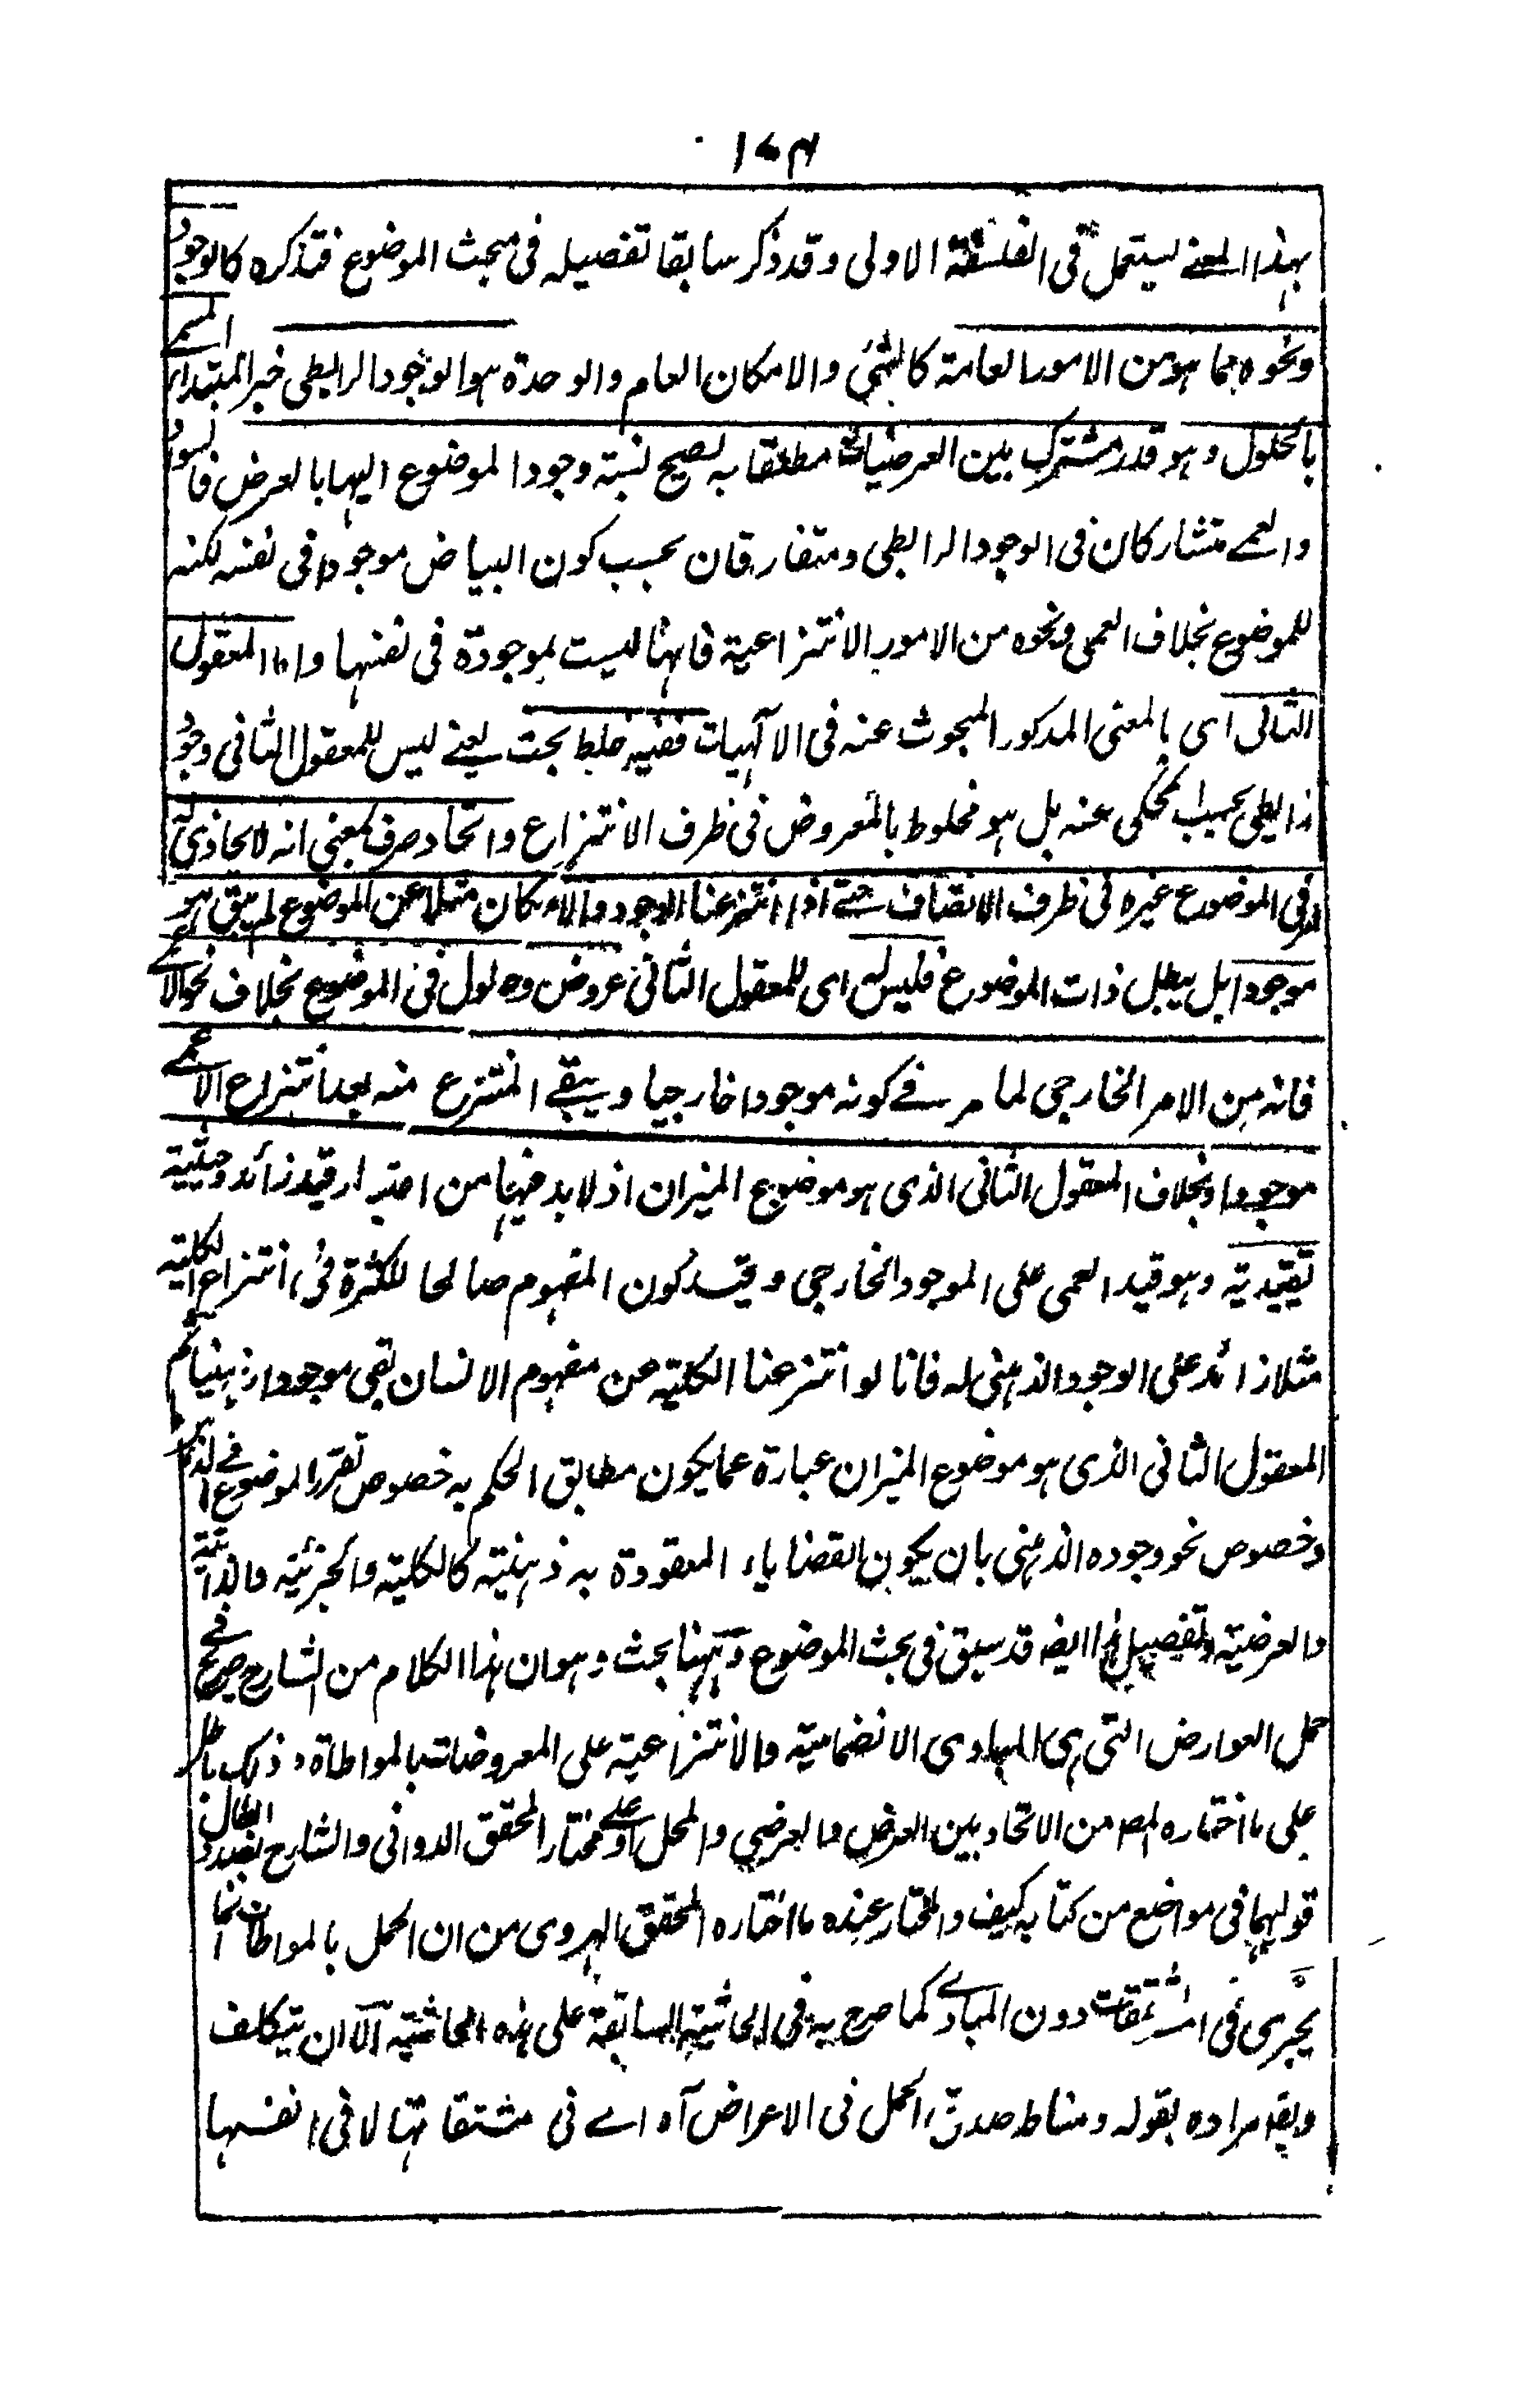 ١٧٤
بهذا المعنے يستعمل فى الفلسفة الاولى وقد ذكر سابقا تفصيله فى مبحث الموضوع فتذكره كالوجود
ونحوه مما هو من الامور العامة كالشئى والامكان العام والوحدة هو الوجود الرابطى خبر المبتدا المسمے
بالحلول وهو قدر مشترك بين العرضيات مطلقا به يصح نسبة وجود الموضوع اليها بالعرض فالسواد
والعمے متشاركان فى الوجود الرابطى ومتفارقان بحسب كون البياض موجودا فى نفسه لكنه
للموضوع بخلاف العمى ونحوه من الامور الانتزاعية فانها ليست بموجودة فى نفسها واما المعقول
الثانى اى بالمعنى المذكور المبحوث عنه فى الآلهيات ففيه خلط بحت يعنے ليس للمعقول الثانى وجود
رابطى بحسب المحكى عنه بل هو مخلوط بالمعروض فى ظرف الانتزاع واتحاد صرف بمعنى انه لا يحاذى
امر فى الموضوع غيره فى ظرف الاتصاف حتے اذا انتزعنا الوجود والامكان مثلا عن الموضوع لم يبق هو
موجودا بل يبطل ذات الموضوع فليس له اى للمعقول الثانى عروض وحلول فى الموضوع بخلاف نحو الاعمے
فانه من الامر الخارجى لما مر فے كونه موجودا خارجيا ويبقے المنتزع منه بعد انتزاع الاعمے
موجودا وبخلاف المعقول الثانى الذى هو موضوع الميزان اذ لا بد فيها من اعتبار قيد زائد وحيثية
تقييدية وهو قيد العمى على الموجود الخارجى وقيد كون المفهوم صالحا للكثرة فى انتزاع الكلية
مثلا زائد على الوجود الذهنى له فانا لو انتزعنا الكلية عن مفهوم الانسان بقى موجودا ذهنيا
المعقول الثانى الذى هو موضوع الميزان عبارة عما يكون مطابق الحكم به خصوص تقرر الموضوع فے الذهن
وخصوص نحو وجوده الذهنى بان يكون القضاياء المعقودة به ذهنية كالكلية والجزئية والذاتية
والعرضية وتفصيل هذا ايضه قد سبق فى بحث الموضوع وههنا بحث وهو ان هذا الكلام من الشارح صريح فے
حمل العوارض التى هى المبادى الانضمامية والانتزاعية على المعروضات بالمواطاة وذلك باطل
على ما اختاره المص من الاتحاد بين العرض والعرضى والمحل او علے مختار المحقق الدوانى والشارح بصدد ابطال
قوليهما فى مواضع من كتابه كيف والمختار عنده ما اختاره المحقق الهروى من ان الحمل بالمواطاة انما
يجرى فى المشتقات دون المبادے كما صرح به فى الحاشية السابقة على هذه الحاشية الا ان يتكلف
ويقه مراده بقوله ومناط صدق الحمل فى الاعراض آه اے فى مشتقاتها لا فى انفسها